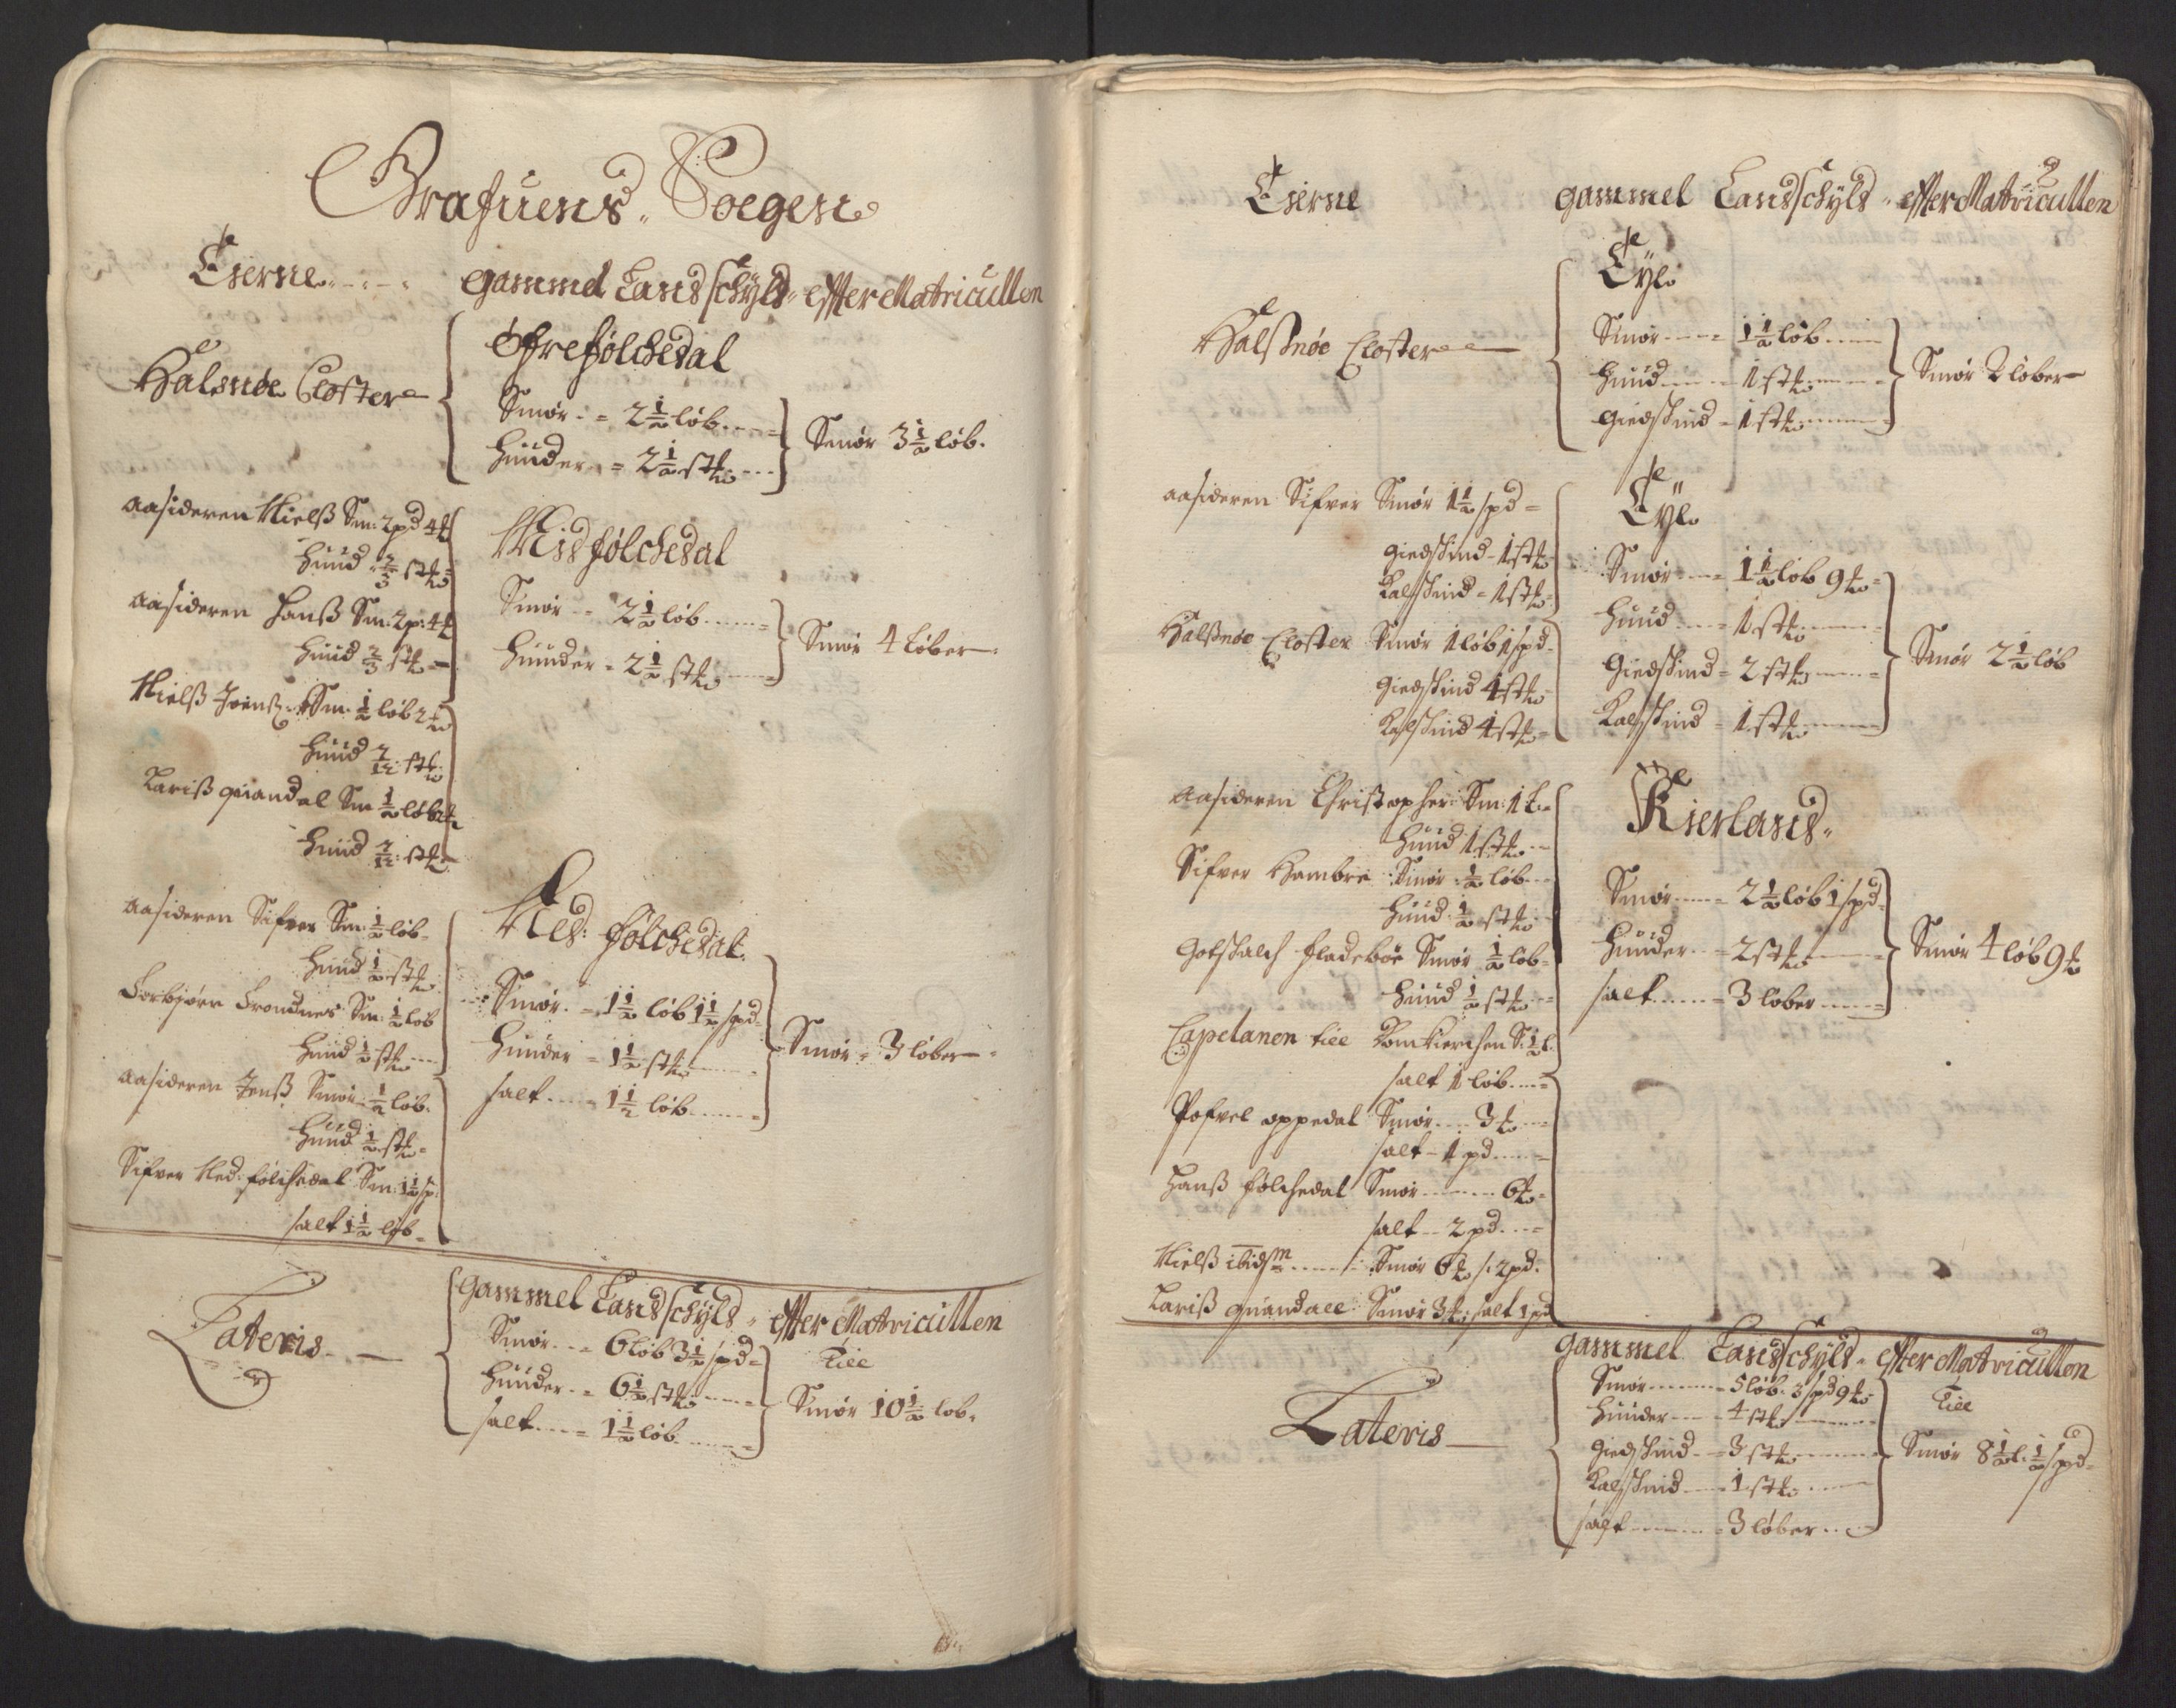 Grafuens Soegen
Eierne gammel Landschyld efter Matricullen
Halsnøe Closter
Øfrefølchedal
Smør = 2½ løb
Huuder = 2½ stk
Smør 3½ løb.
Aasideren Nielß Sm: 2 pd 4 ℔
Huud 2/3 stk
Aasideren Hanß Sm: 2 p: 4 ℔
Huud 2/3 stk
Nielß Jenß: Sm: ½ løb 2 ℔
Huud 7/12 stk
Lariß quandal Sm ½ løb 2 ℔
Huud 7/12 stk
Midfølchedal
Smør = 2½ løb
Huuder = 2½ stk
Smør 4 løber
Aasideren Sifver Sm: ½ løb
Huud ½ stk
Torbjørn Trondnes Sm: ½ løb
Huud ½ stk
Aasideren Jenß Smør ½ løb.
Huud ½ stk
Sifver Ned: følchedal Sm: 1½ sp:
salt 1½ løb
Ned: følchedal.
Smør = 1½ løb 1½ spd
Huuder = 1½ stk
salt = 1½ løb
Smør = 3 løber
Lateris
gammel Landschyld efter Matricullen
Smør = 6 løb 3½ spd
Huuder = 6½ stk
salt = 1½ løb
Till
Smør 10½ løb
Eierne gammel Landschyld efter Matricullen
Halßnøe Closter
Tyle
Smør = 1½ løb
Huud 1 stk
giedskind = 1 stk
Smør 2 løber
Aasideren Sifver Smør 1½ spd
giedskind 1 stk
Kalfskind = 1 stk
Halßnøe Closter Smør 1 løb 1 spd
giedskind 1 stk
Kalfskind 1 stk
Tyle
Smør = 1½ løb 9 ℔
Huud = 1 stk
Giedskind = 2 stk
Kalfskind = 1 stk
Smør 2½ løb
Aasideren Christopher Sm: 1 l:
Huud 1 stk
Sifver Hambre Smør ½ løb
Huud ½ stk
Gotskalch fladebøe Smør ½ løb
Huud ½ stk
Capelanen till Domkierchen S: ½ l:
salt 1 løb
Pofvel oppedal Smør 3 ℔
salt 1 pd
Hanß følchedal Smør 6 ℔
salt 2 pd
Nielß ibidm Smør 6 ℔ s: 2 pd.
Lariß quandall Smør 3 ℔ salt 1 pd
Kierland
Smør = 2½ løb 1 spd
Huuder = 2 stk
salt = 3 løber
Smør 4 løb 9 ℔
Lateris
gammel Landschyld efter Matricullen
Smør = 5 løb 3 spd 9 ℔
Huuder 4 stk
giedskind = 3 stk
Kalfskind 1 stk
salt = 3 løber
Till
Smør 8½ l: ½ spd